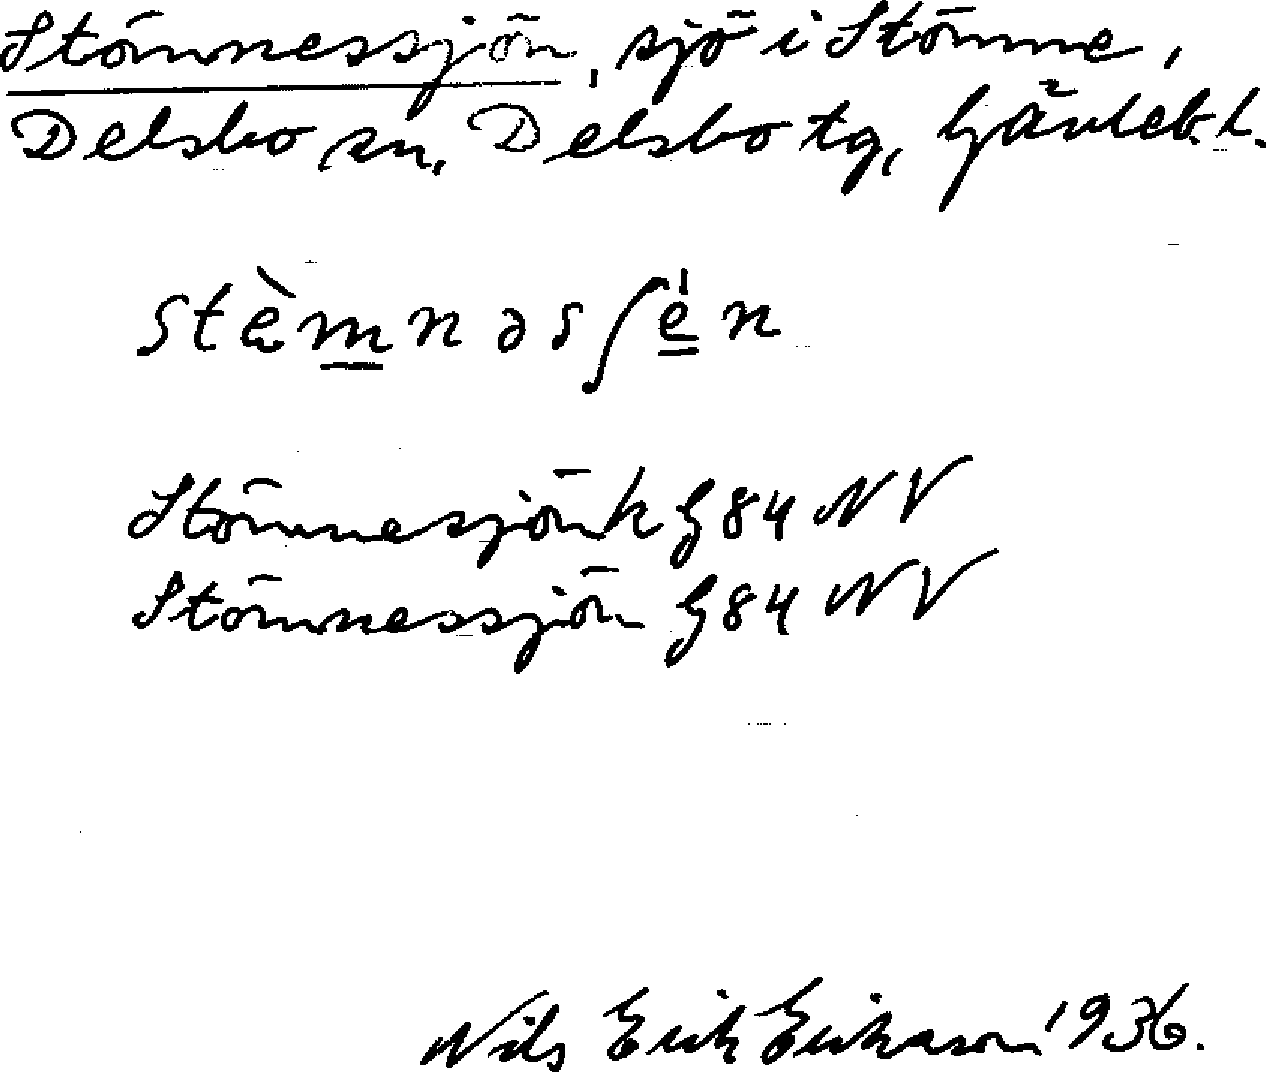 Stömnessjön, sjö i Stömne,
Delsbo sn, Delsbo tg, Gävleb. l.
stèmnəsʃén
Stömnesjön k G 84 NV
Stömnessjön G 84 NV
Nils Erik Erikason 1936.